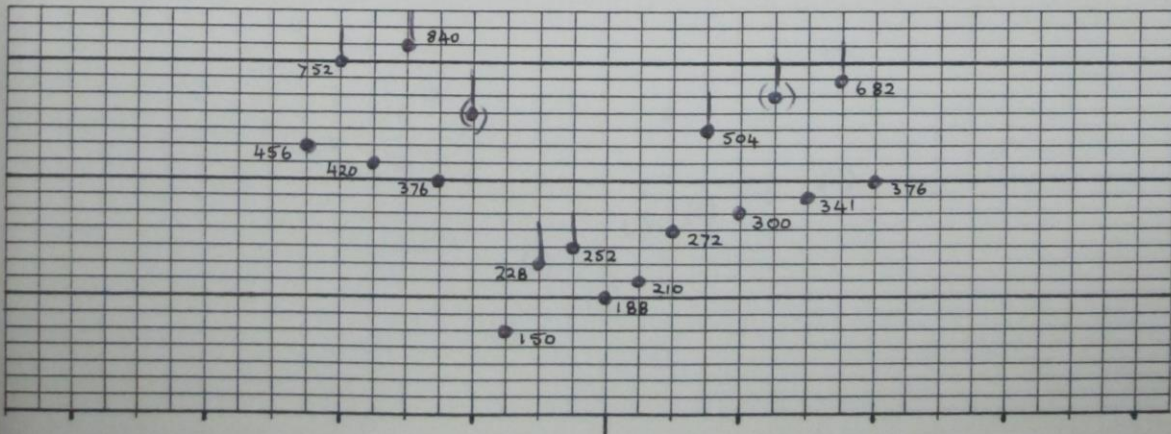 840
752
682
504
456
420
376
376
341
300
272
252
228
210
188
150